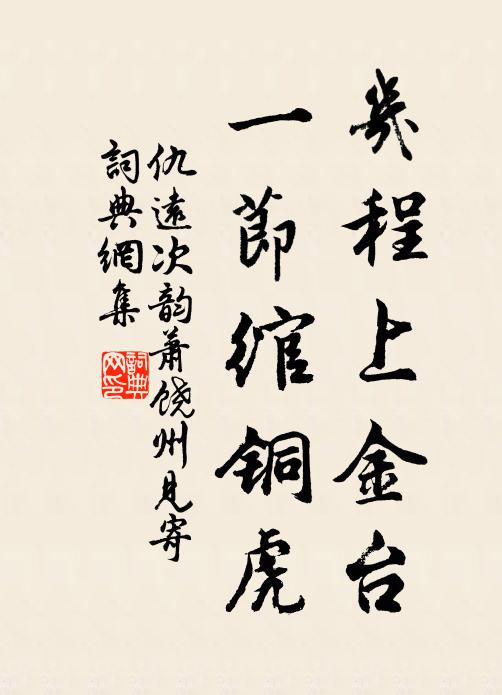 几程上金台
一节绾铜虎
仇远次韵萧饶州见寄
词典网集
词典
网印